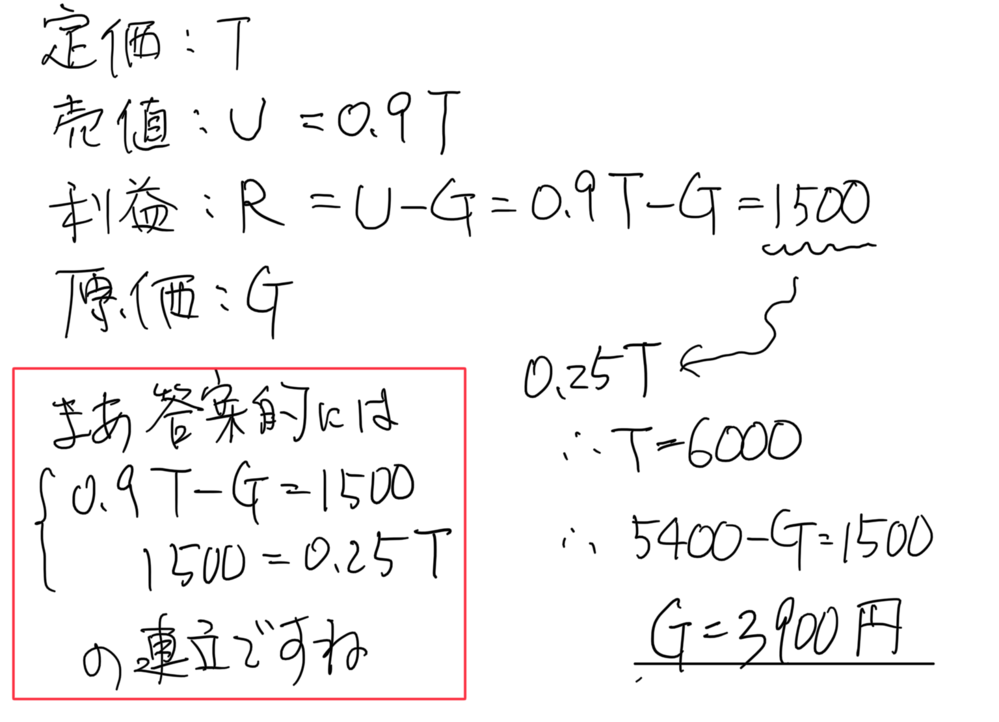 定価：T
売値：U = 0.9T
利益：R = U-G = 0.9T-G = 1500
原価：G
0.25T
∴ T=6000
∴ 5400-G=1500
G=3900円
まあ答案的には
0.9T-G=1500
1500=0.25T
の連立ですね